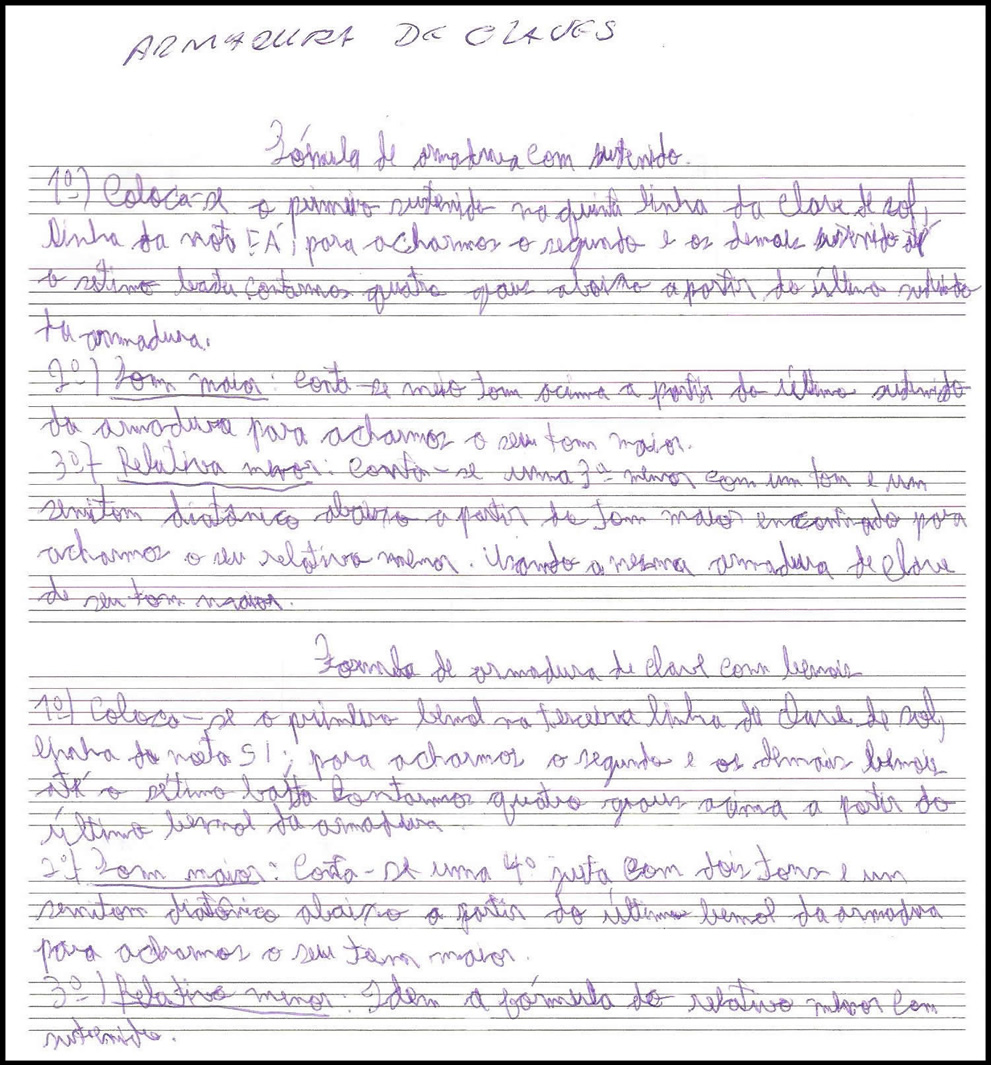 ARMADURA DE CLAVES
Fórmula de armadura com sustenido.
1º) Coloca-se o primeiro sustenido na quinta linha da clave de sol,
linha da nota FÁ; para acharmos o segundo e os demais sustenido até
o sétimo basta contarmos quatro graus abaixo a partir do último sustenido
da armadura.
2º) Tom maior: Conta-se meio tom acima a partir do último sustenido
da armadura para acharmos o seu tom maior.
3º) Relativa menor: Conta-se uma 3ª menor com um tom e um
semitom diatônico abaixo a partir do tom maior encontrado para
acharmos o seu relativo menor. Usando a mesma armadura de clave
de seu tom maior.
Formula de armadura de clave com bemois
1º) Coloca-se o primeiro bemol na terceira linha da clave de sol,
linha da nota SI; para acharmos o segundo e os demais bemois
até o sétimo basta contarmos quatro graus acima a partir do
último bemol da armadura.
2º) Tom maior: Conta-se uma 4º justa com dois tons e um
semitom diatônico abaixo a partir do último bemol da armadura
para acharmos o seu tom maior.
3º) Relativo menor: Idem a fórmula do relativo menor com
sustenido.